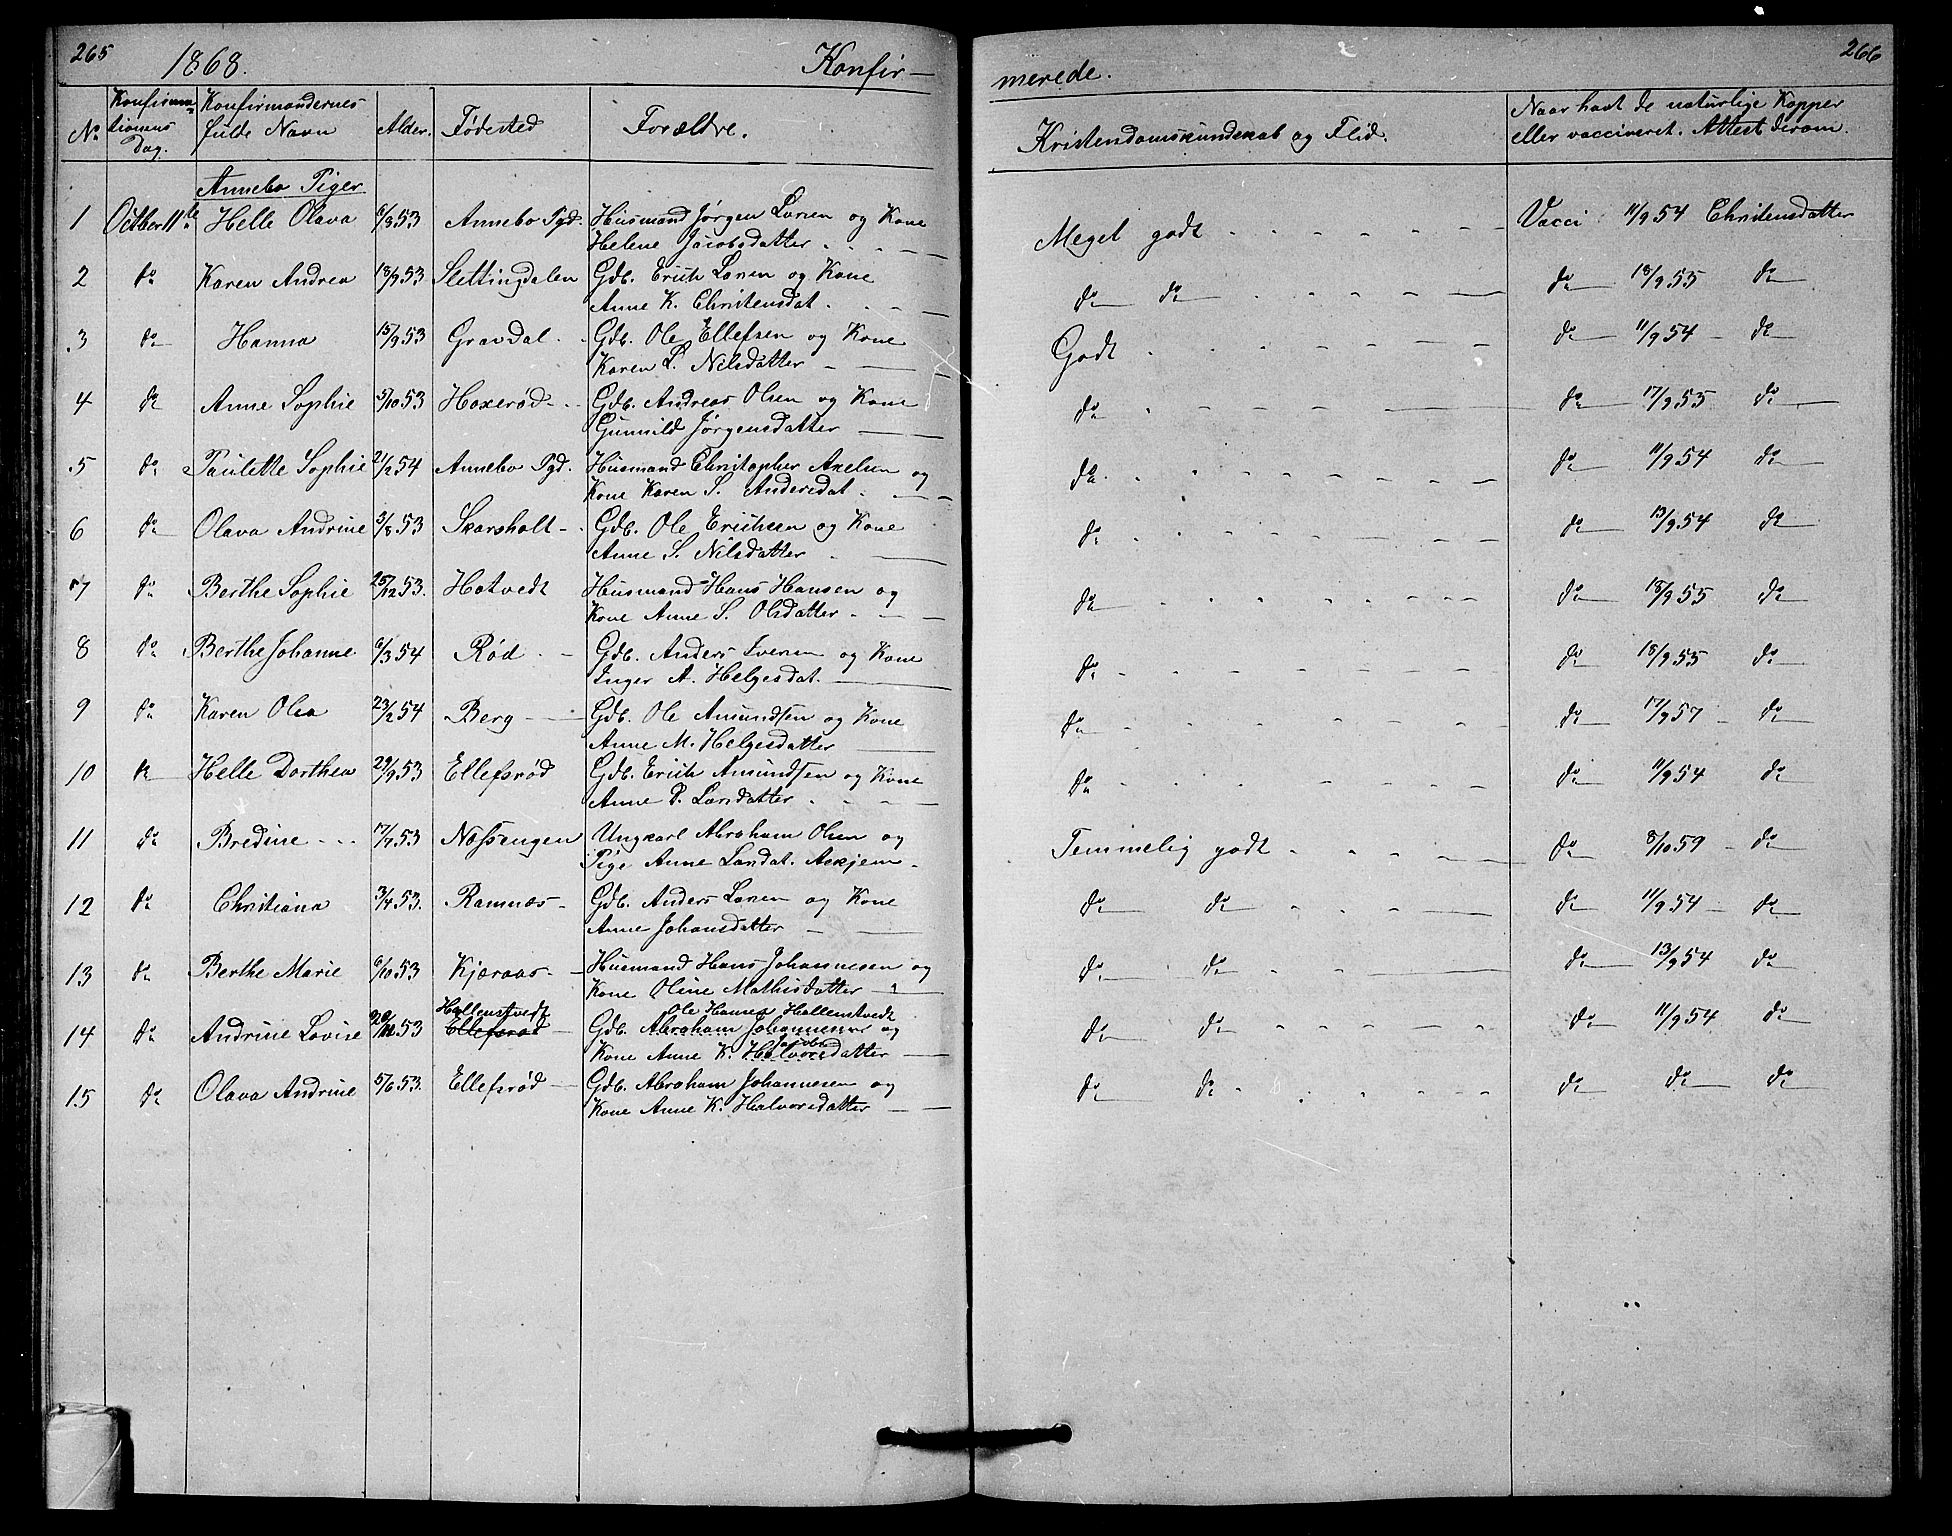 265 1868. Konfir-
merede. 266
No Konfirmationens Dag. Konfirmandernes fulde Navn Alder. Födested Forældre. Kristendomskundskab og Flid. Naar havt de naturlige Kopper eller vaccineret. Attest derom.
Annebo Piger
1 October 11te Helle Olava 6/8 53 Annebo Pgd. Husmand Jørgen Larsen og Kone Meget godt Vacci 11/9 54 Christensdatter
Helene Jacobsdatter
2 do Karen Andrea 13/9 53 Slettingdalen Gdb. Erich Larsen og Kone do do do 18/9 55 do
Anne K. Christensdat.
3 do Hanna 15/9 53 Gravdal Gdb. Ole Ellefsen og Kone Godt do 11/9 54 do
Karen L. Nilsdatter
4 do Anne Sophie 5/10 53 Hoxerød Gdb. Andreas Olsen og Kone do do 17/9 55 do
Gunnild Jørgensdatter
5 do Paulette Sophie 21/2 54 Annebo Pgd. Husmand Christopher Axelsen og do do 11/9 54 do
Kone Karen S. Andersdat.
6 do Olava Andrine 3/8 53 Skarsholt Gdb. Ole Erichsen og Kone do do 13/9 54 do
Anne S. Nilsdatter
7 do Berthe Sophie 25/12 53. Hotvedt Husmand Hans Hansen og do do 18/9 55 do
Kone Anne S. Olsdatter
8 do Berthe Johanne 6/3 54 Rød Gdb. Anders Iversen og Kone do do 18/9 55 do
Inger A. Helgesdat.
9 do Karen Olea 23/2 54 Berg Gdb. Ole Amundsen og Kone do do 17/9 57 do
Anne M. Helgesdatter
10 do Helle Dorthea 29/9 53 Ellefsrød Gdb. Erich Amundsen og Kone do do 11/9 54 do
Anne P. Larsdatter
11 do Bredine 17/7 53 Ungkarl Abraham Olsen og Temmelig godt do 8/10 59 do
Pige Anne Larsdat. Askjem
12 do Christiana 3/4 53. Ramnæs Gdb. Anders Larsen og Kone do do do 11/9 54 do
Anne Johansdatter
13 do Berthe Marie 6/10 53 Kjæraas Husmand Hans Johannesen og do do do 13/9 54 do
Kone Oline Mathisdatter
Hallenstvedt Ole Hansen Hallenstvedt
14 do Andrine Lovise 20/12 53 Ellefsrød Gdb. Abraham Johannesen og do do do 11/9 54 do
Jacobs
Kone Anne K. Halvorsdatter
15 do Olava Andrine 5/6 53. Ellefsrød Gdb. Abraham Johannesen og do do do do do
Kone Anne K. Halvorsdatter